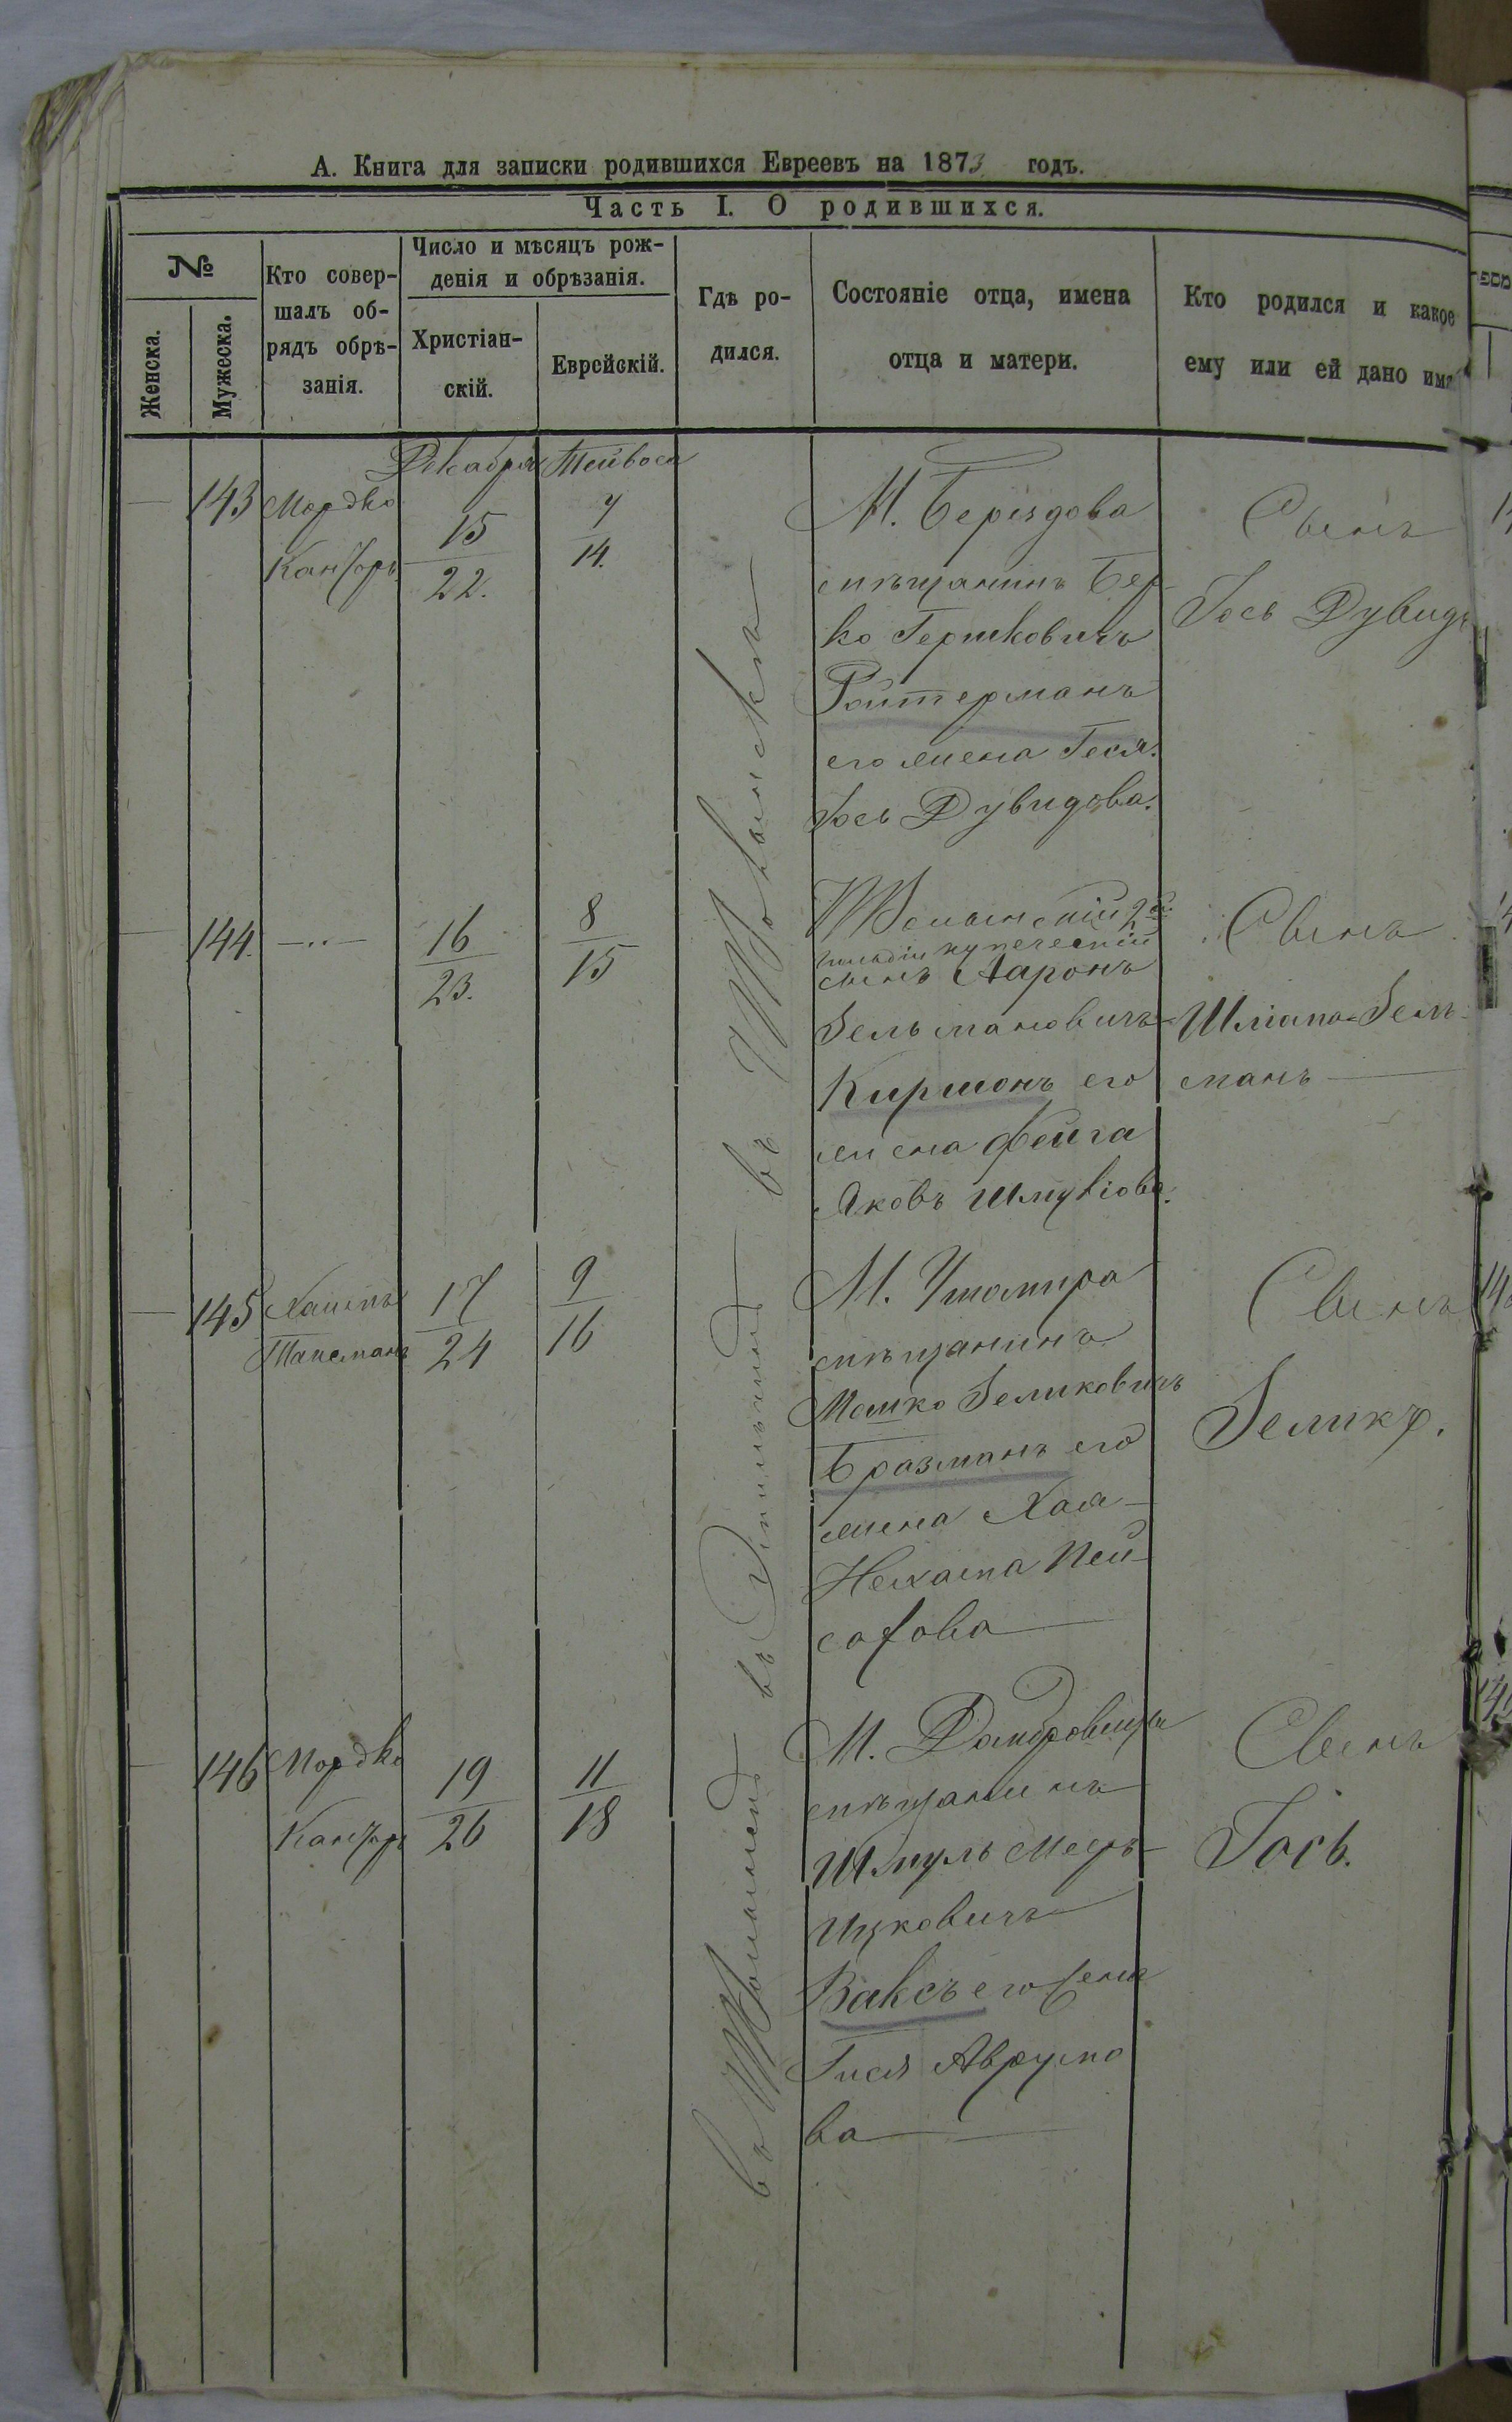 А. Книга для записки родившихся Евреевъ на 1873 годъ.
Часть I. О родившихся.
№
Женска.
Мужеска.
Кто совер-
шалъ об-
рядъ обрѣ-
занія.
Число и мѣсяцъ рож-
денія и обрѣзанія.
Христіан-
скій.
Еврейскій.
Гдѣ ро-
дился.
Состояніе отца, имена
отца и матери.
Кто родился и какое
ему или ей дано имя
Декабря Тейвоса
143
Мордко
Канторъ
15
22.
7
14.
М. Беріздова
мѣщанинъ Бер-
ко Гершковичъ
Ройтерманъ
его жена Гися
Іось Дувидова.
Сынъ
Іось Дувидъ
144.
16
23.
8
15
2й
гильдіи купеческій
сынъ Ааронъ
Зельмановичъ
Киршонъ его
жена Фейга
Яковъ Шмулiова.
Сынъ
Шліома-Зель-
манъ
145
Хаимъ
Таксманъ
17
24
9
16
М. Ушомира
мѣщанинъ
Мошко Зеликовичъ
Бразманъ его
жена Хая-
Нехама Пей-
сахова
Сынъ
Зеликъ.
146
Мордко
Канторъ
19
26
11
18
М. Домбровицы
мѣщанинъ
Шмуль Меєръ
Ицковичъ
Ваксъ его жена
Гися Аврумо
ва
Сынъ
Іось.
въ
въ
въ